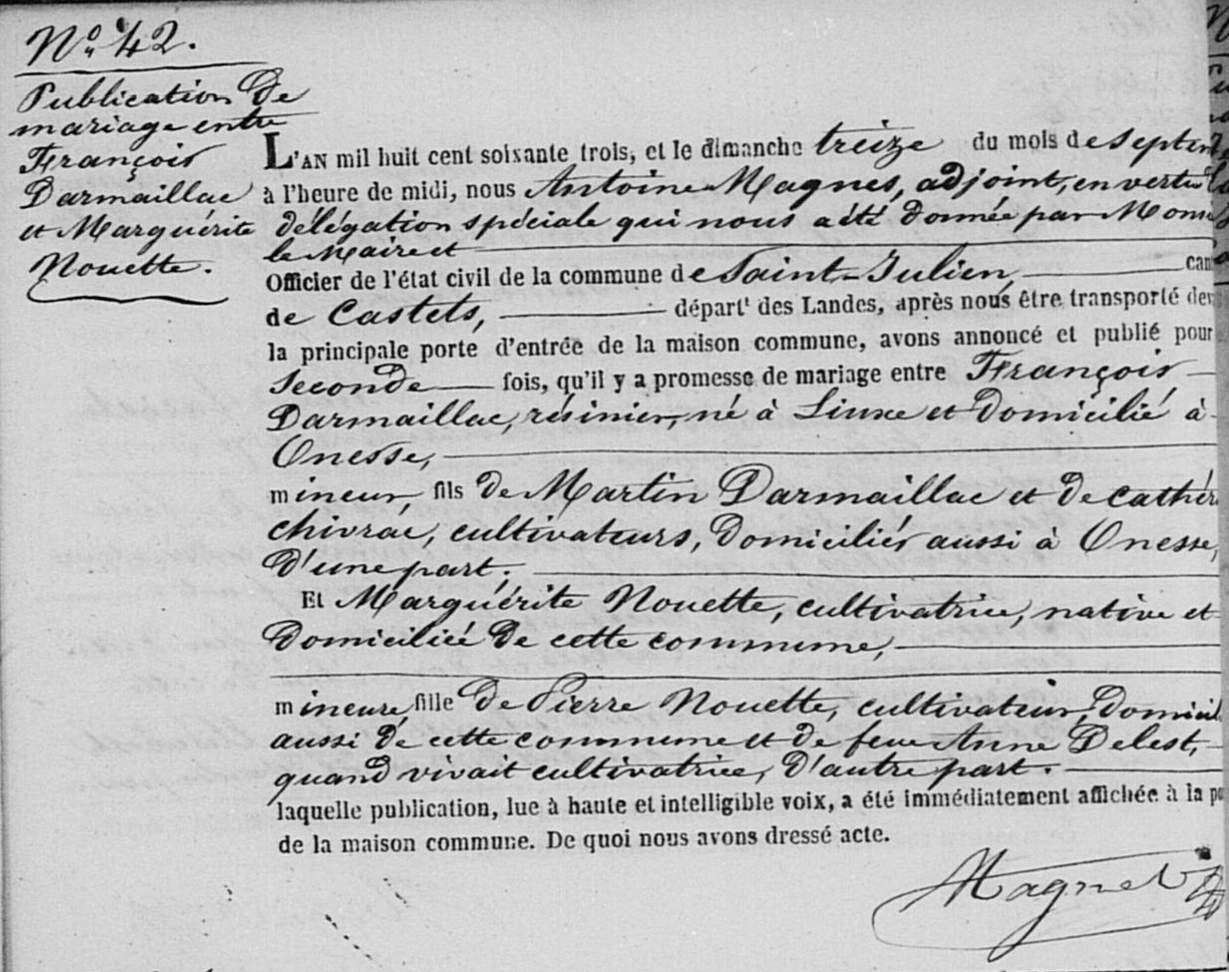 No. 42.
Publication de
mariage entre
François
Darmaillac
et Marguérite
Nouette.
L'AN mil huit cent soixante trois, et le dimanche treize du mois de septem
à l'heure de midi, nous Antoine Magnes, adjoint, en vertu
délégation spéciale qui nous a été donnée par Monsi
le Maire et
Officier de l'état civil de la commune de Saint-Julien, can
de Castets, départt des Landes, après nous être transporté dev
la principale porte d'entrée de la maison commune, avons annoncé et publié pour
Seconde fois, qu'il y a promesse de mariage entre François
Darmaillac, résinier, né à Linxe et domicilié à
Onesse,
mineur fils de Martin Darmaillac et de cathéri
chivrac, cultivateurs, domiciliés aussi à Onesse,
d'une part;
Et Marguérite Nouette, cultivatrice, native et
domiciliée de cette commune,
mineure fille de Pierre Nouette, cultivateur, domicil
aussi de cette commune et de feue Anne Delest,
quand vivait cultivatrice, d'autre part.
laquelle publication, lue à haute et intelligible voix, a été immédiatement affichée à la po
de la maison commune. De quoi nous avons dressé acte.
Magnes